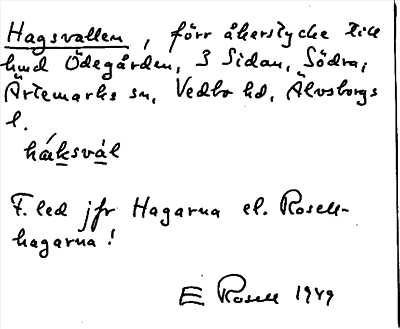 Hagsvallen, förr åkerstycke till
hmd Ödegården, S Sidan, Södra,
Ärtemarks sn, Vedbo hd, Älvsborgs
l.
håksvàl
F.led jfr Hagarna el. Rosell-
hagarna!
E Rosell 1949